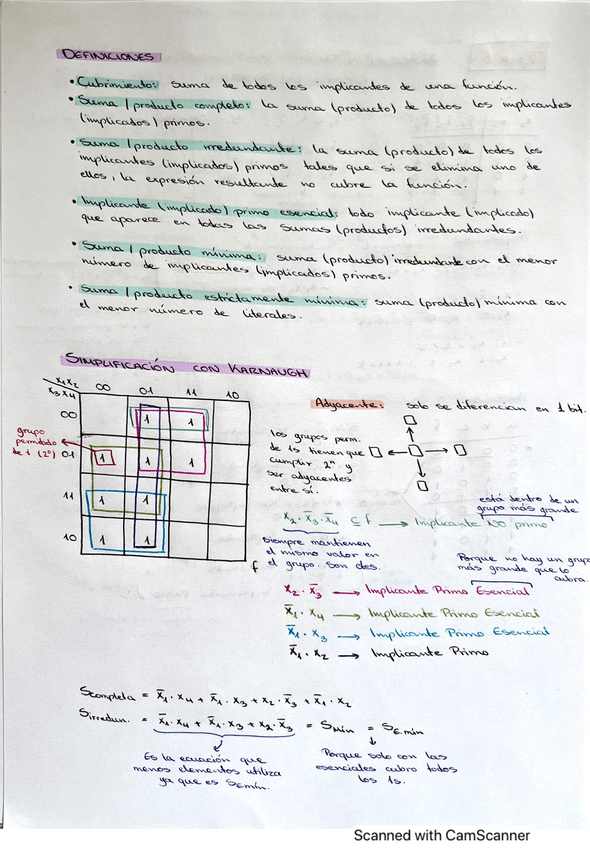 DEFINICIONES
• Cubrimiento: suma de todos los implicantes de una función.
• Suma / producto completo: la suma (producto) de todos los implicantes
(implicados) primos.
• Suma / producto irredundante: la suma (producto) de todos los
implicantes (implicados) primos tales que si se elimina uno de
ellos, la expresión resultante no cubre la función.
• Implicante (implicado) primo esencial: todo implicante (implicado)
que aparece en todas las sumas (productos) irredundantes.
• Suma / producto mínima: suma (producto) irredundante con el menor
número de implicantes (implicados) primos.
• Suma / producto estrictamente mínima: suma (producto) mínima con
el menor número de literales.
SIMPLIFICACIÓN CON KARNAUGH
x₁x₂
x₃x₄
00 01 11 10
00 1 1
01 1 1 1
11 1 1
10 1 1
f
grupo
permitido
de 1 (2⁰)
Adyacente: solo se diferencian en 1 bit.
los grupos perm.
de 1s tienen que
cumplir 2ⁿ y
ser adyacentes
entre sí.
está dentro de un
grupo más grande
x₂·x̄₃·x̄₄ ⊆ f → Implicante NO primo
siempre mantienen
el mismo valor en
el grupo. son des.
Porque no hay un grupo
más grande que lo
cubra.
x₂·x̄₃ → Implicante Primo Esencial
x̄₁·x₄ → Implicante Primo Esencial
x̄₁·x₃ → Implicante Primo Esencial
x̄₁·x₂ → Implicante Primo
Scompleta = x̄₁·x₄ + x̄₁·x₃ + x₂·x̄₃ + x̄₁·x₂
Sirredun. = x̄₁·x₄ + x̄₁·x₃ + x₂·x̄₃ = Smín = SE.mín
Es la ecuación que
menos elementos utiliza
ya que es SEmín.
Porque solo con las
esenciales cubro todos
los 1s.
Scanned with CamScanner